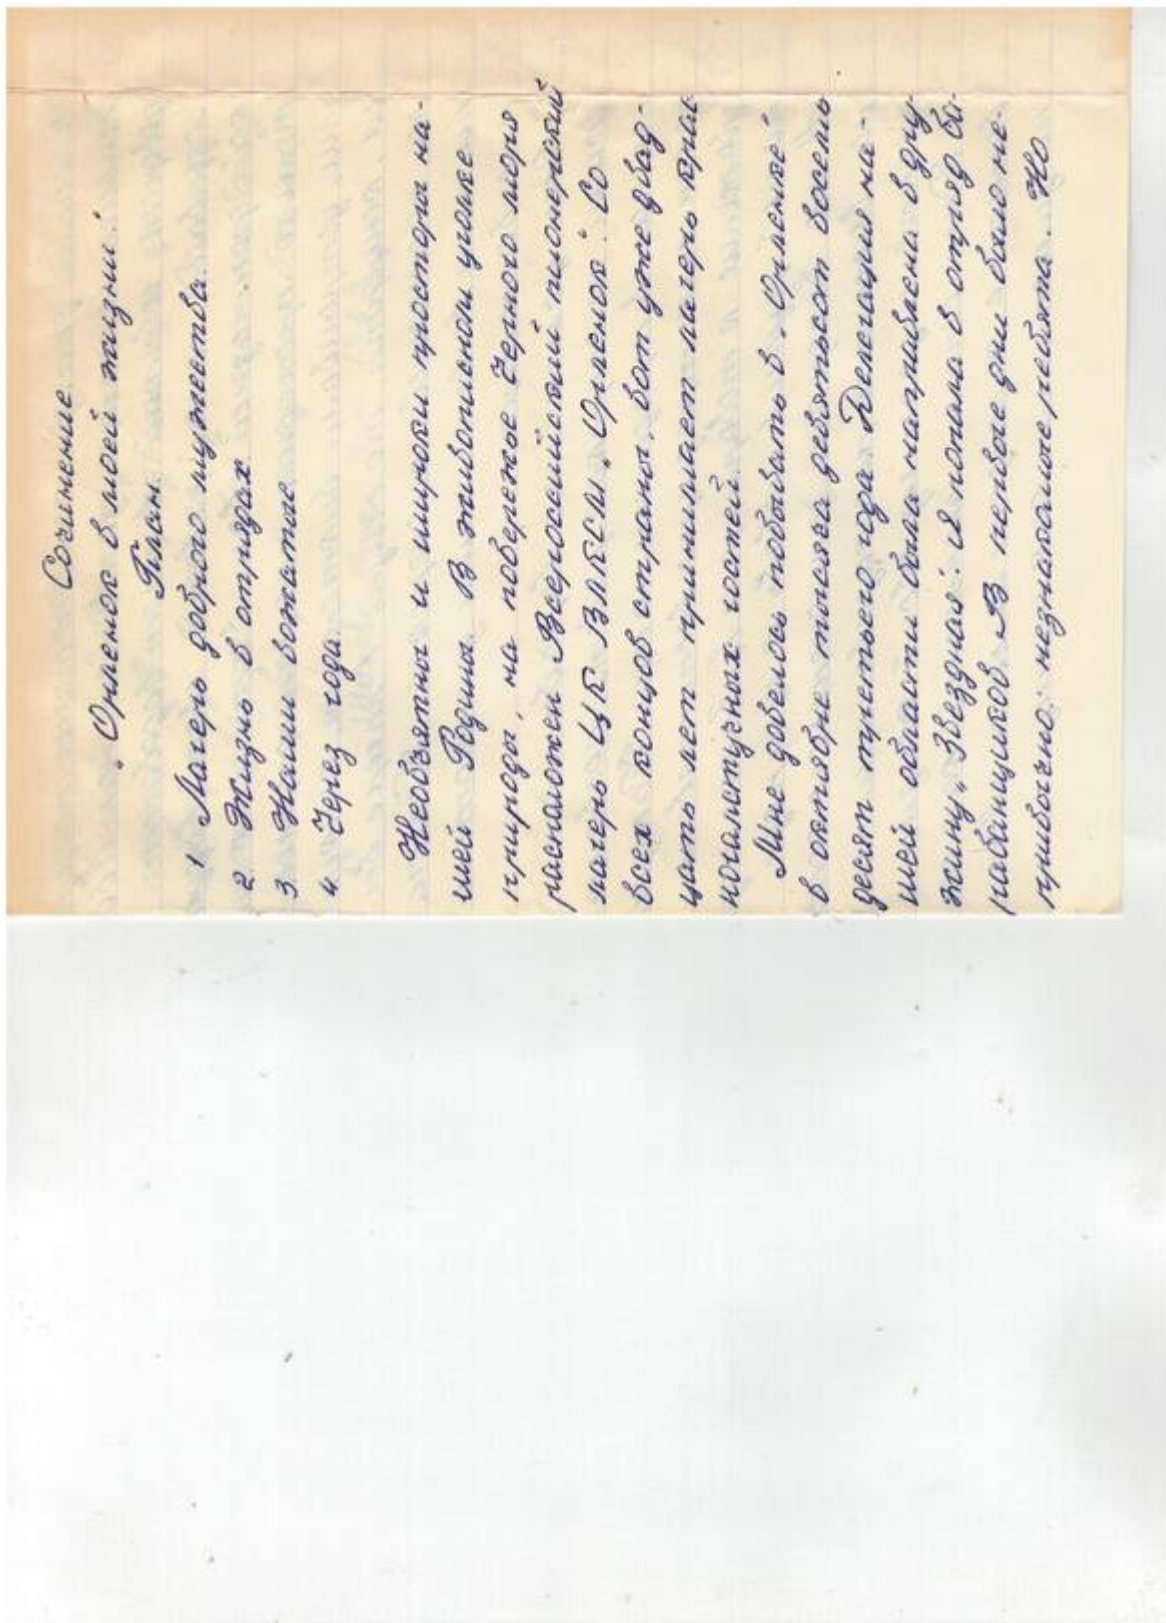 Сочинение
„Орленок в моей жизни.“
План.
1 Лагерь доброго мужества.
2 Жизнь в отрядах.
3 Наши вожатые
4 Через года.
Необъятны и широки просторы на-
шей Родины. В живописном уголке
природы, на побережье Черного моря
расположен Всероссийский пионерский
лагерь ЦК ВЛКСМ „Орленок“. Со
всех концов страны, вот уже двад-
цать лет принимает лагерь крас
ногалстучных гостей.
Мне довелось побывать в „Орленке“
в октябре тысяча девятьсот восемь
десят третьего года. Делегация на-
шей области была направлена в дру
жину „Звездная“. Я попала в отряд ба-
рабанщиков. В первые дни было не-
привычно: незнакомые ребята. Но